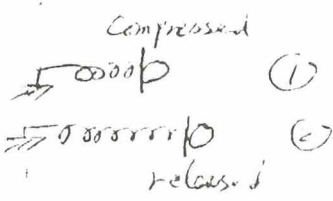 Compressed
①
②
released